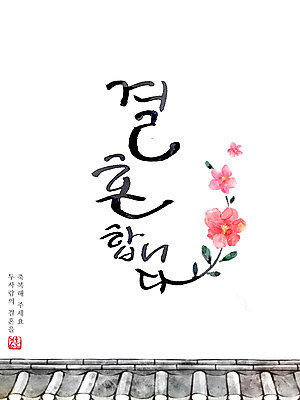 결
혼
합니
다
두사람의 결혼을
축복해 주세요